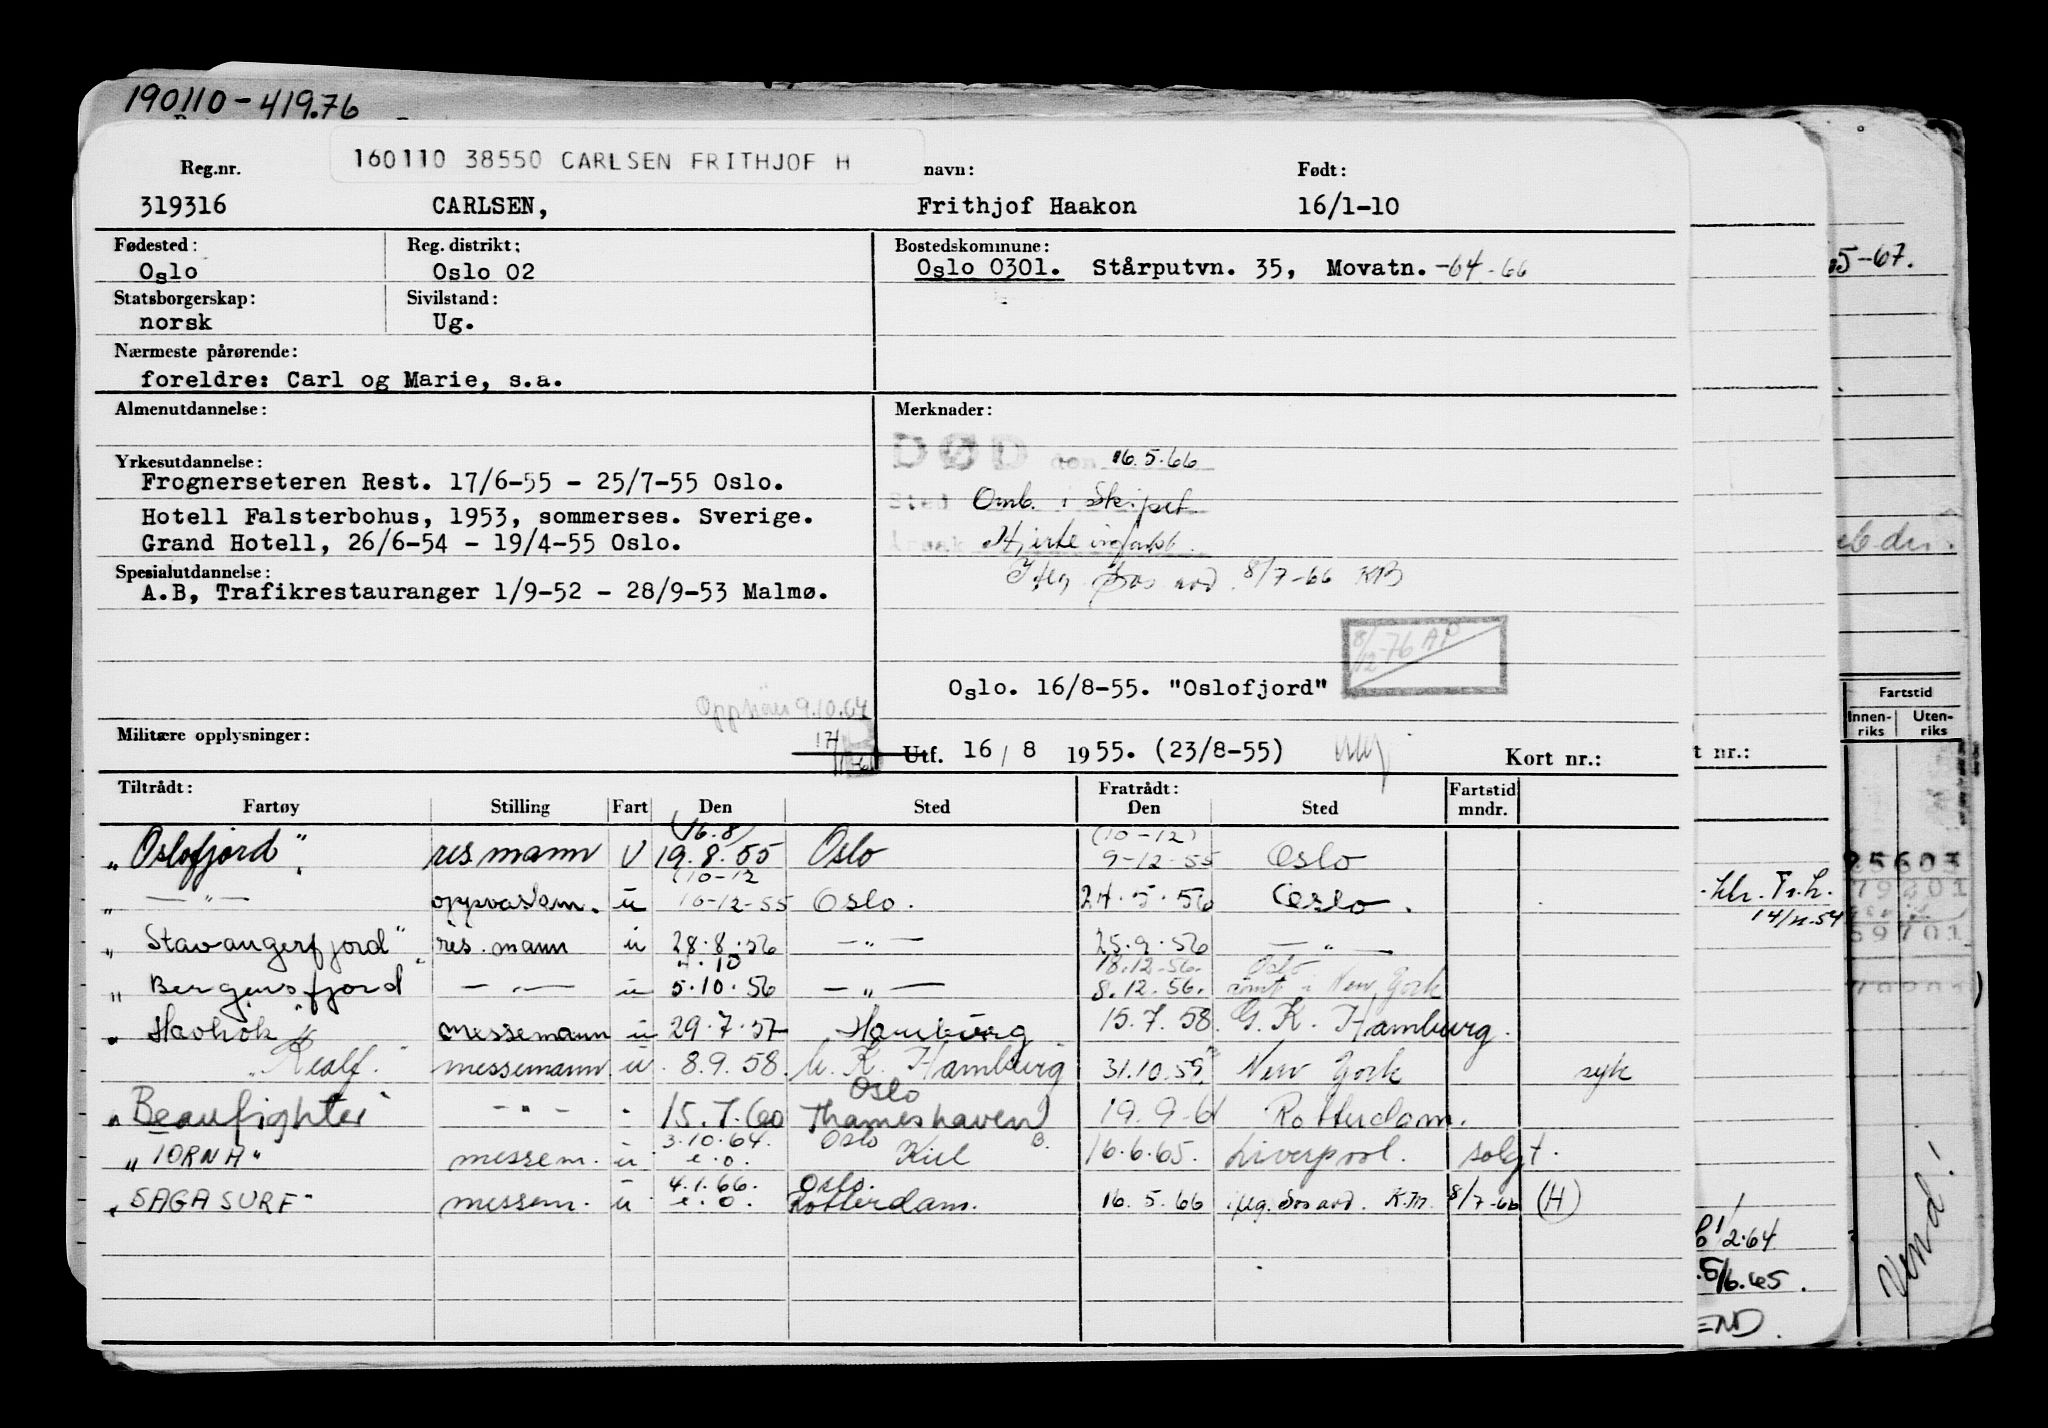 190110-419.76
160110 38550 CARLSEN FRITHJOF H
Reg.nr. navn: Født:
319316 CARLSEN, Frithjof Haakon 16/1-10
Fødested: Reg. distrikt: Bostedskommune:
Oslo Oslo 02 Oslo 0301. Stårputvn. 35, Movatn. -64-66
Statsborgerskap: Sivilstand:
norsk Ug.
Nærmeste pårørende:
foreldre: Carl og Marie, s.a.
Almenutdannelse: Merknader:
DØD den 16.5.66
Yrkesutdannelse:
Frognerseteren Rest. 17/6-55 - 25/7-55 Oslo.
Sted Omb. i Skipet
Hotell Falsterbohus, 1953, sommerses. Sverige.
Grand Hotell, 26/6-54 - 19/4-55 Oslo.
Årsak Hjerteinfarkt.
Spesialutdannelse:
A.B, Trafikrestauranger 1/9-52 - 28/9-53 Malmø.
8/7-66
8/12-76 AP
Oslo. 16/8-55. "Oslofjord"
Opphører 9.10.64
Militære opplysninger:
Utf. 16/8 1955. (23/8-55) Kort nr.:
Tiltrådt: Fratrådt: Fartstid
Fartøy Stilling Fart Den Sted Den Sted mndr.
(16.8) (10-12)
"Oslofjord" res mann U 19.8.55 Oslo 9-12-55 Oslo
(10-12
" — " — oppvaskm. u 10-12-55 Oslo. 24.5.56 Oslo.
"Stavangerfjord" res. mann u 28.8.56 — " — 25.9.56 — " —
4.10 18.12.56. Oslo
"Bergensfjord" — " — u 5.10.56 — " — 8.12.56. amt i New York
"Havhok" messemann u 29.7.57 Hamburg 15.7.58. G.K. Hamburg.
"Realf." messemann u. 8.9.58. U.K. Hamburg 31.10.59. New York syk
Oslo
"Beaufighter" - " - - 15.7.60 Thameshaven 19.9-61 Rotterdam.
3.10.64. Oslo
"TORNA" messem. u e.o. Kiel 16.6.65. Liverpool. solgt.
4.1.66. Oslo.
"SAGA SURF" messem. u e.o. Rotterdam. 16.5.66 8/7-66 (H)
5-67.
Fartstid
Innen-riks Uten-riks
t nr.:
14/11.54
2.64
5/6.65.
END.
Vend!